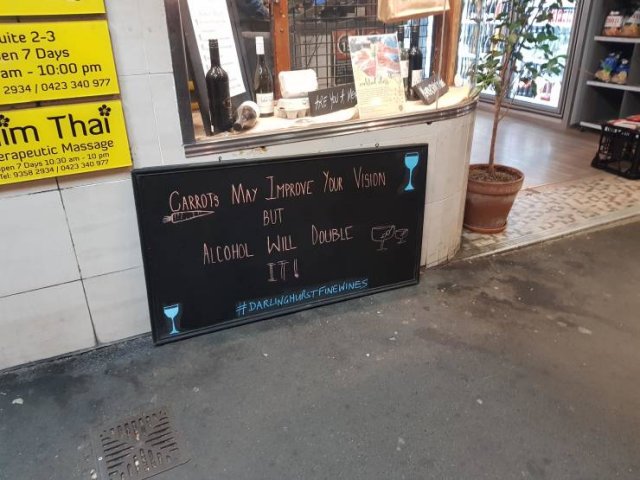 uite 2-3
pen 7 Days
am - 10:00 pm
2934 / 0423 340 977
im Thai
erapeutic Massage
pen 7 Days 10:30 am - 10 pm
Tel: 9358 2934 / 0423 340 977
CARROTS MAY IMPROVE YOUR VISION
BUT
ALCOHOL WILL DOUBLE
IT!
#DARLINGHURSTFINEWINES